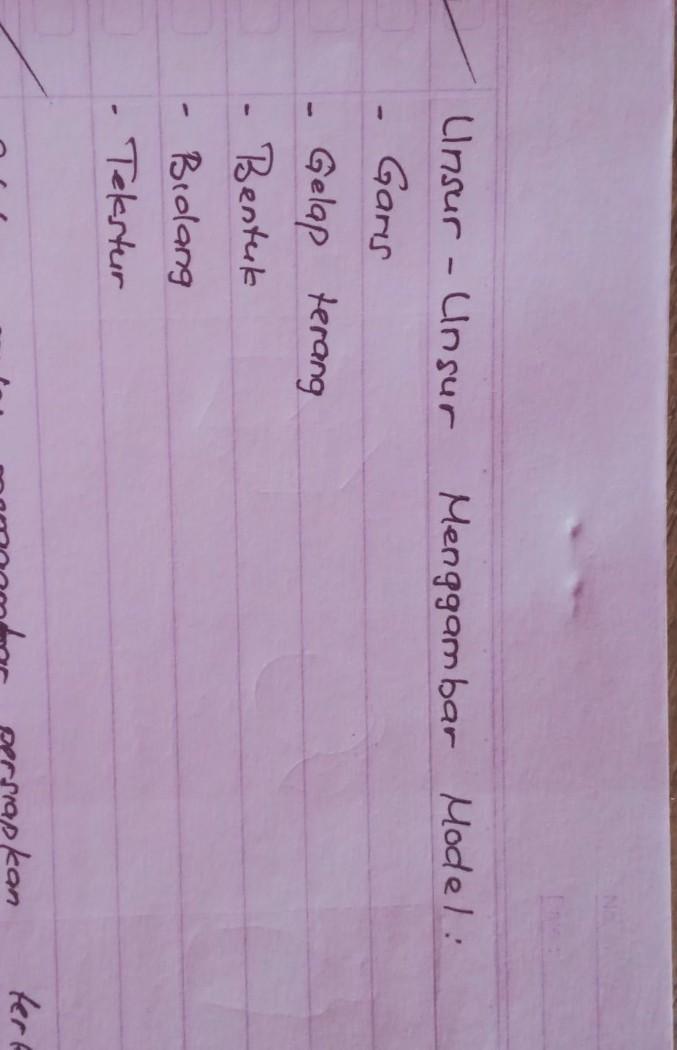 Unsur - Unsur Menggambar Model :
- Garis
- Gelap terang
- Bentuk
- Bidang
- Tekstur
persiapkan